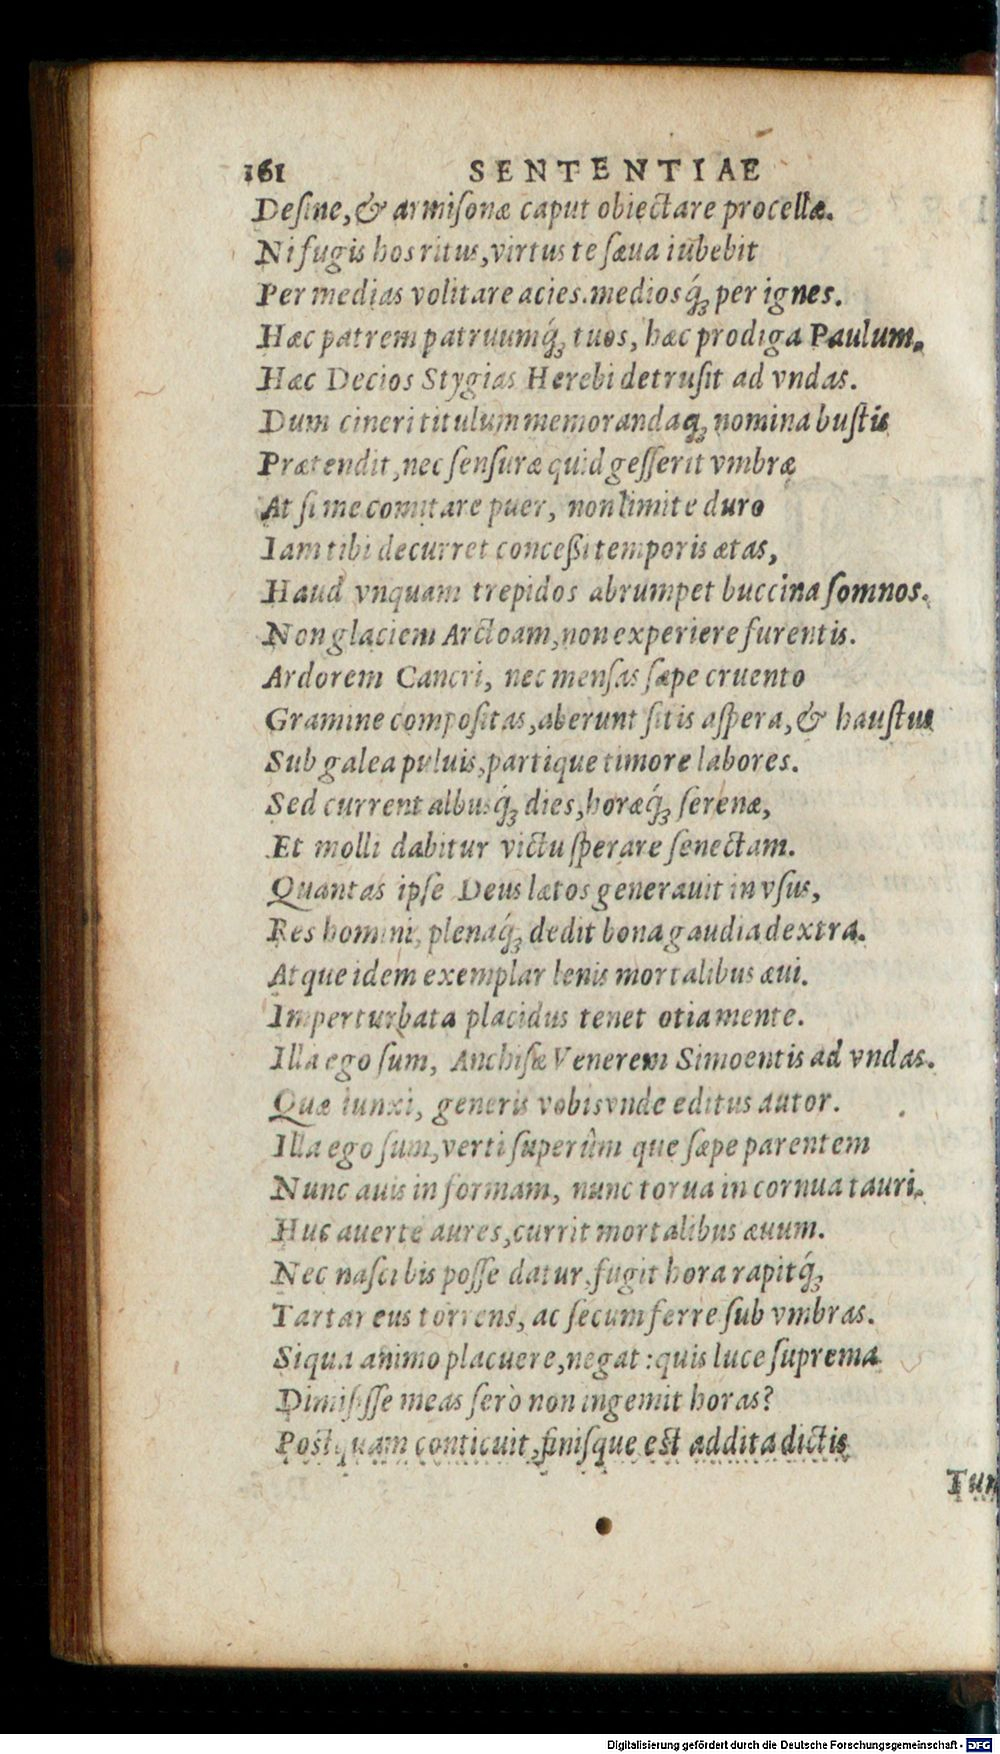 161 SENTENTIAE
Deſine, & armiſonæ caput obiectare procellæ.
Ni fugis hos ritus, virtus te ſæua iubebit
Per medias volitare acies. medioſq́; per ignes.
Hæc patrem patruumq́; tuos, hæc prodiga Paulum.
Hæc Decios Stygias Herebi detruſit ad vndas.
Dum cineri titulum memorandaq; nomina buſtis
Prætendit, nec ſenſuræ quid geſſerit vmbræ
At ſi me comitare puer, non limite duro
Iam tibi decurret conceßi temporis ætas,
Haud vnquam trepidos abrumpet buccina ſomnos.
Non glaciem Arctoam, non experiere furentis.
Ardorem Cancri, nec menſas ſæpe cruento
Gramine compoſitas, aberunt ſitis aſpera, & hauſtus
Sub galea puluis, partique timore labores.
Sed current albuſq́; dies, horæq́; ſerenæ,
Et molli dabitur victu ſperare ſenectam.
Quantas ipſe Deus lætos generauit in vſus,
Res homini, plenaq́; dedit bona gaudia dextra.
Atque idem exemplar lenis mortalibus æui.
Imperturbata placidus tenet otia mente.
Illa ego ſum, Anchiſæ Venerem Simoentis ad vndas.
Quæ iunxi, generis vobis vnde editus autor.
Illa ego ſum, verti ſuperûm que ſæpe parentem
Nunc auis in formam, nunc torua in cornua tauri.
Huc auerte aures, currit mortalibus æuum.
Nec naſci bis poſſe datur, fugit hora rapitq́;
Tartareus torrens, ac ſecum ferre ſub vmbras.
Siqua animo placuere, negat: quis luce ſuprema
Dimiſiſſe meas ſerò non ingemit horas?
Postquam conticuit, finiſque est addita dictis
Tun
Digitalisierung gefördert durch die Deutsche Forschungsgemeinschaft - DFG